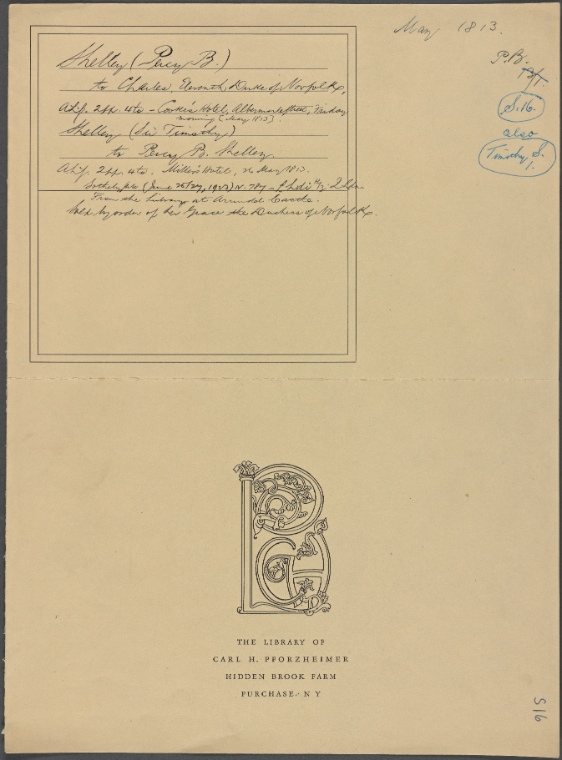 May 1813.
P.B.
S.16.
also
Timothy S.
1.
Shelley (Percy B.)
to Charles, Eleventh Duke of Norfolk,
A.l.s. 2pp. 4to - Cooke's Hotel, Albemarle Street, Friday
morning [May 1813]
Shelley (Sir Timothy)
to Percy B. Shelley
A.l.s. 2pp. 4to. Miller's Hotel, 26 May 1813.
Sotheby's (June 26/27, 1922) N. 787
From the Library at Arundel Castle.
Sold by order of her Grace the Duchess of Norfolk
THE LIBRARY OF
CARL H. PFORZHEIMER
HIDDEN BROOK FARM
PURCHASE, N Y
S16